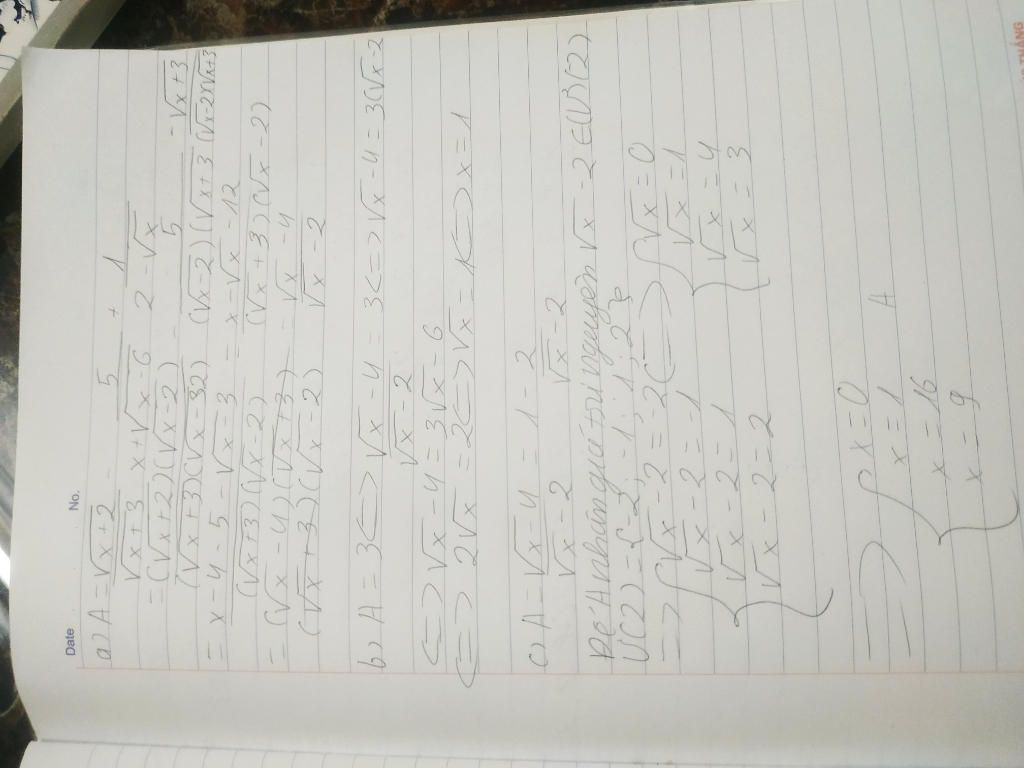 Date No.
a) A = √x+2 / √x+3 - 5 / x+√x-6 + 1 / 2-√x
= (√x+2)(√x-2) / (√x+3)(√x-32) - 5 / (√x-2)(√x+3) - √x+3 / (√x-2)(√x+3
= x-4-5-√x-3 / (√x+3)(√x-2) = x-√x-12 / (√x+3)(√x-2)
= (√x-4)(√x+3) / (√x+3)(√x-2) = √x-4 / √x-2
b) A = 3 <=> √x-4 / √x-2 = 3 <=> √x-4 = 3(√x-2
<=> √x-4 = 3√x-6
<=> 2√x = 2 <=> √x = 1 <=> x = 1
c) A = √x-4 / √x-2 = 1 - 2 / √x-2
Để A nhận giá trị nguyên √x-2 ∈ Ư(2)
Ư(2) = {-2; -1; 1; 2}
=> √x-2 = -2 <=> √x = 0
√x-2 = -1 √x = 1
√x-2 = 1 √x = 4
√x-2 = 2 √x = 3
=> x = 0 A
x = 1
x = 16
x = 9